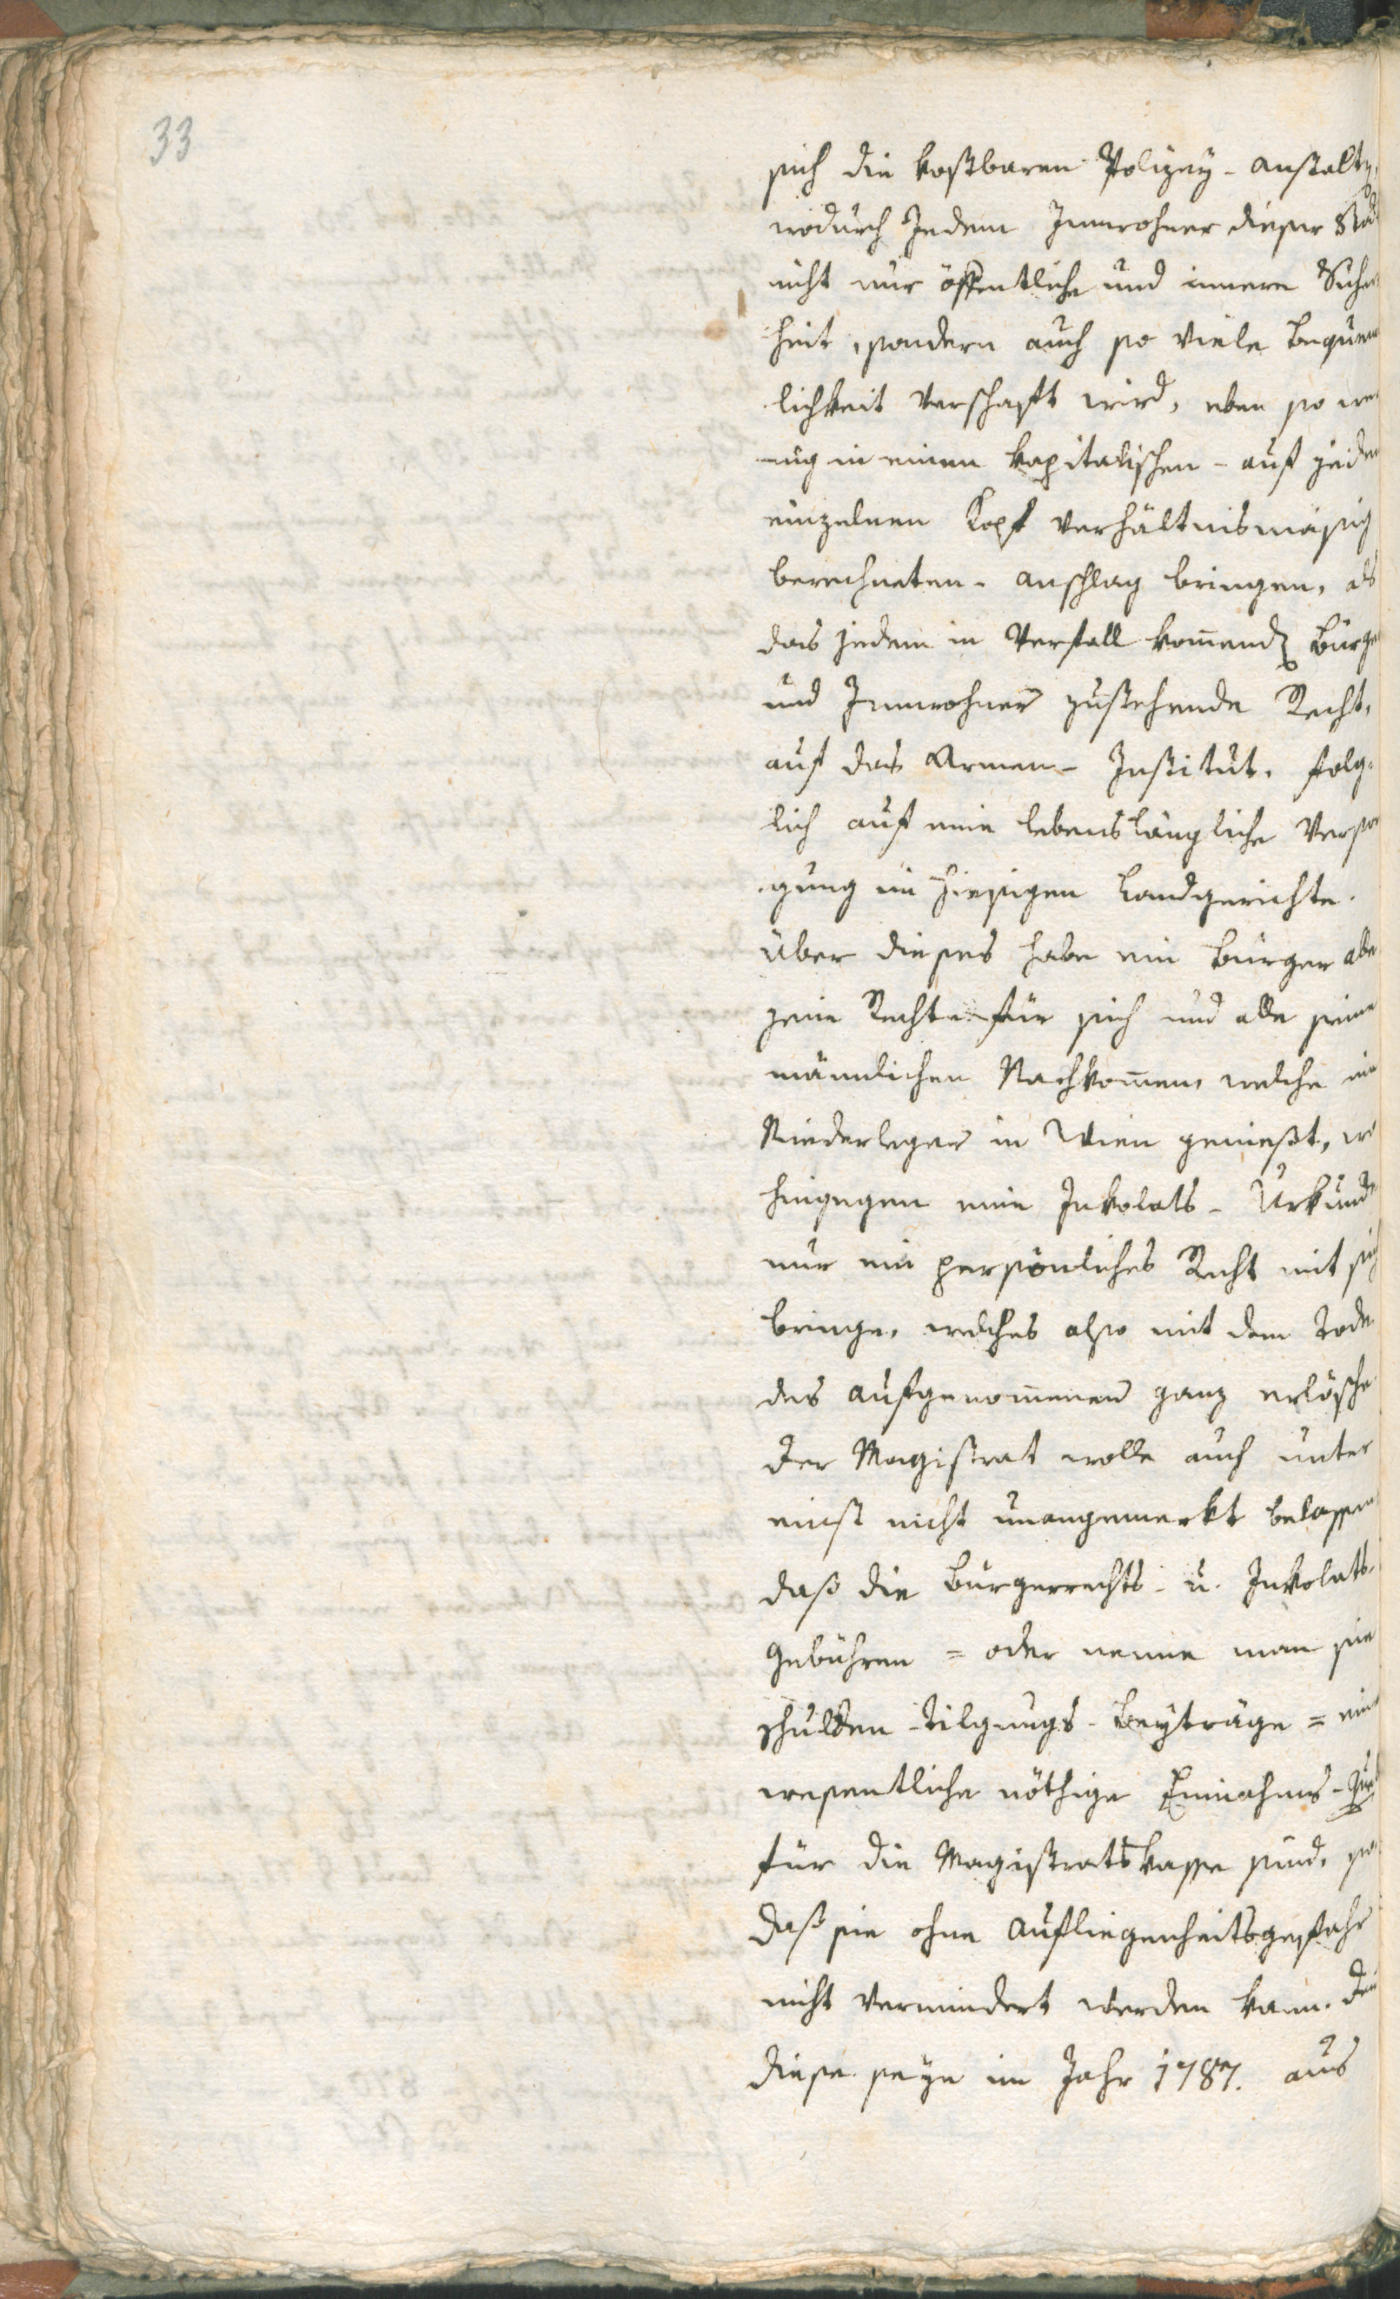 33
sich die kostbaren Polizey-anstalten,
wodurch Jedem Innwohner dieser Stad
nicht nur öffentliche und innere Sicher
heit, sondern auch so viele Bequem
lichkeit verschaft wird, eben so we
nig in einen kapitalischen - auf jeden
einzelnen Kopf verhältnismäsig
berechneten - anschlag bringen, als
das jedem in Verfall komenden Bürger
und Innwohner zustehende Recht,
auf das Armen-Institut, folg-
lich auf eine lebenslängliche Versor
gung im hiesigen Landgerichte.
Über dieses habe ein Bürger alle
jene Rechte für sich und alle seine
männlichen Nachkomen, welche ein
Niederleger in Wien genießt, wo
hingegen eine Inkolats-Urkunde
nur ein persönliches Recht mit sich
bringe, welches also mit dem Tode
des aufgenommenen ganz erlösche.
Der Magistrat wolle auch unter
einst nicht unangemerkt belassen
daß die Bürgerrechts- u. Inkolats-
Gebühren = oder nenne man sie
Schulden-Tilgungs-Beyträge = eine
wesentliche nöthige Einnahms-Quel
für die Magistratskasse sind, so
daß sie ohne Aufliegenheitsgefahr
nicht vermindert werden kann. Den
diese seye im Jahr 1787. aus